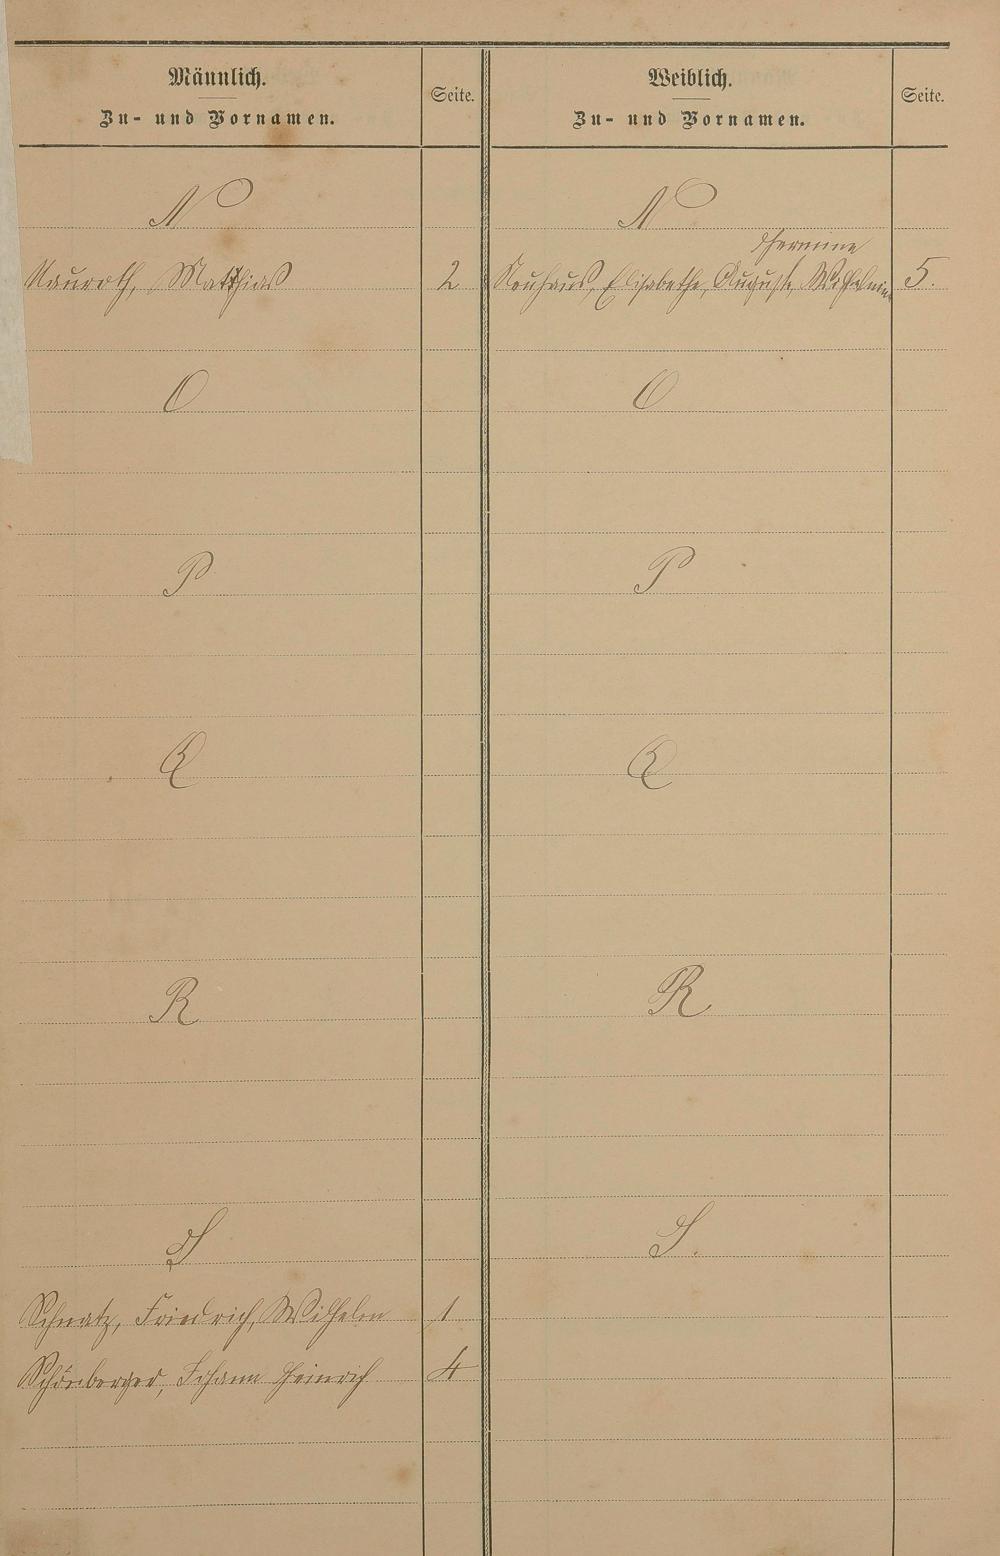 Männlich.
Zu- und Vornamen.
Seite.
Weiblich.
Zu- und Vornamen.
Seite.
N
N
Hermine
Nauroth, Matthias 2
Neuhaus, Elisabethe, Auguste, Wilhelmine 5.
O
O
P
P
Q
Q
R
R
S
S.
Schnatz, Friedrich, Wilhelm 1
Schönberger, Johann Heinrich 4